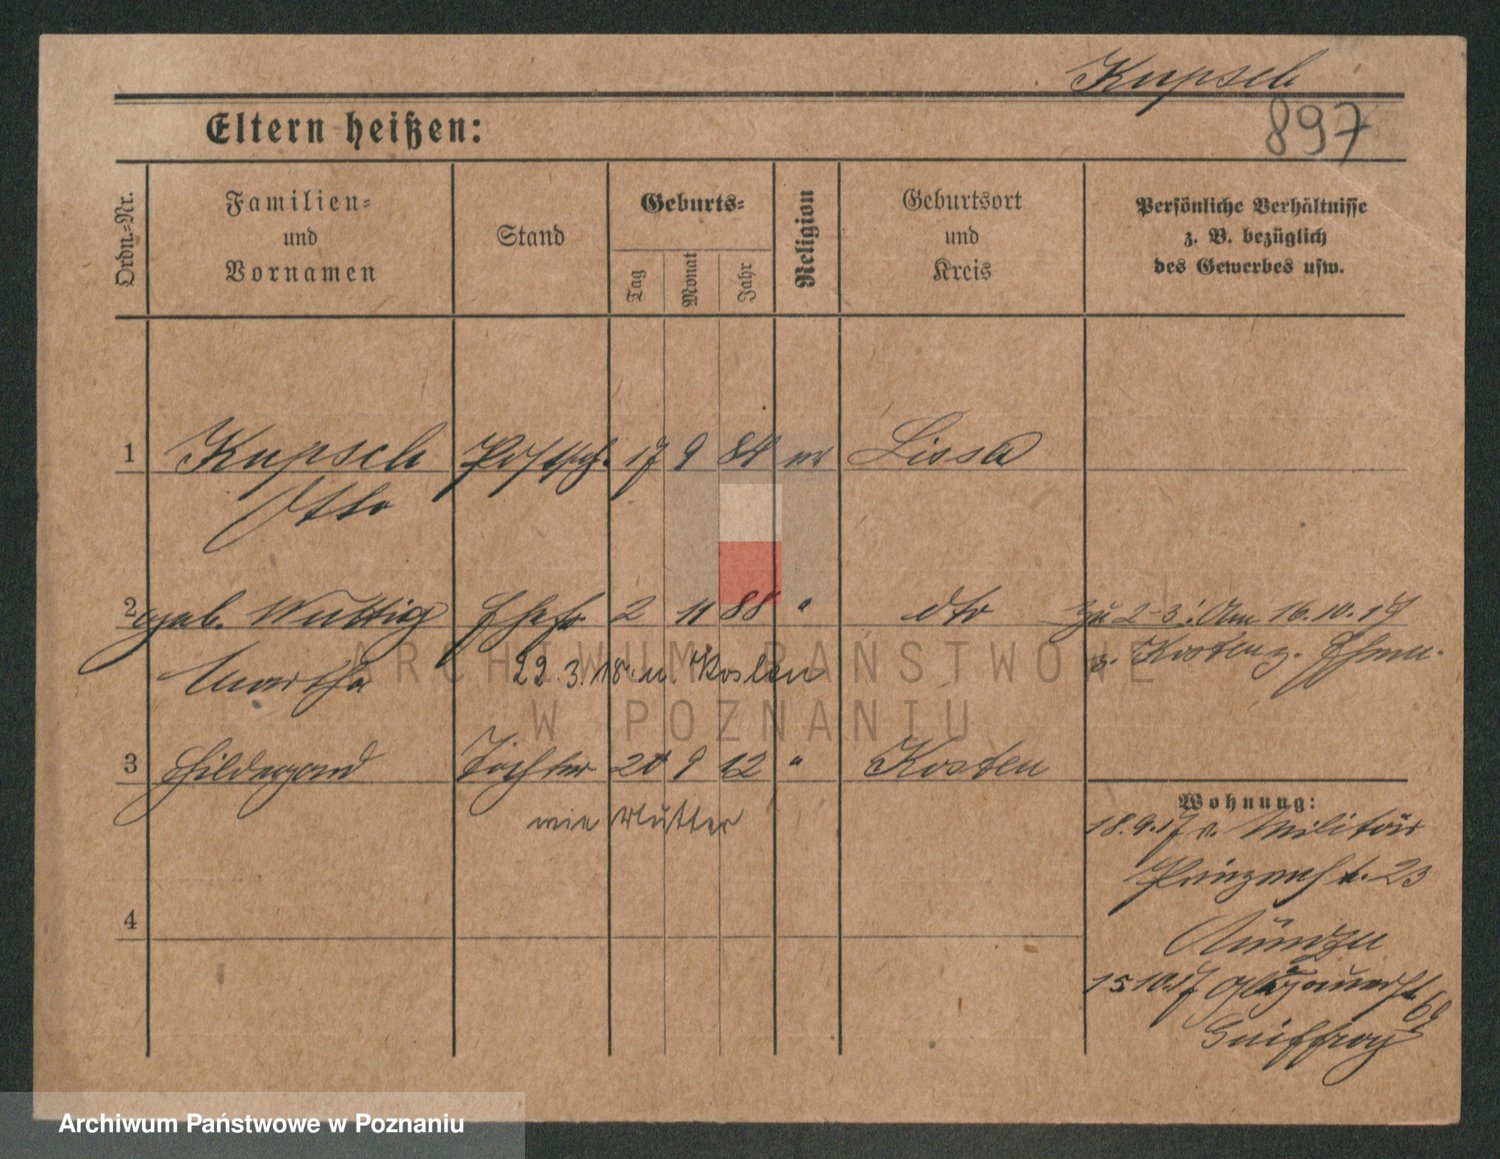 Kupsch
897
Eltern heißen:
Ordn.-Nr.
Familien-
und
Vornamen
Stand
Geburts-
Tag
Monat
Jahr
Religion
Geburtsort
und
Kreis
Persönliche Verhältnisse
z. B. bezüglich
des Gewerbes usw.
1 Kupsch 17 9 84 ev Lissa
Otto
2 geb. Wuttig Ehefr 2 11 88 " dto Zu 2-3: Am 16.10.17
Martha 22.3.18 n. Kosten v. Kosten z. Ehem.
3 Hildegard Tochter 21 9 12 " Kosten
wie Mutter
Wohnung:
18.9.17 v. Militär
23
4
15 10.17 69
ARCHIWUM PAŃSTWOWE
W POZNANIU
Archiwum Państwowe w Poznaniu